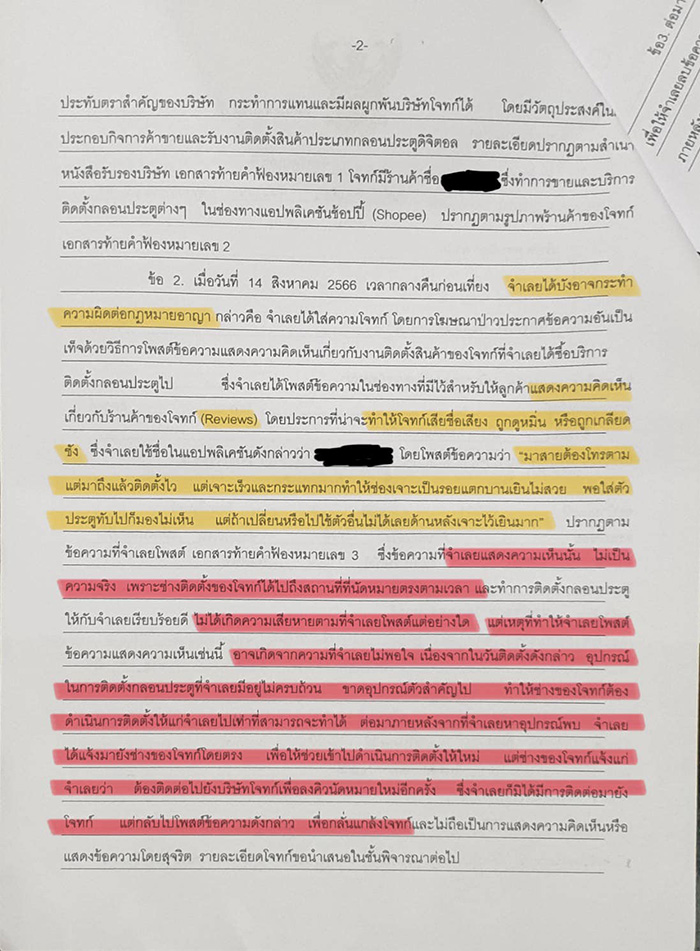 -2-
ประทับตราสำคัญของบริษัท กระทำการแทนและมีผลผูกพันบริษัทโจทก์ได้ โดยมีวัตถุประสงค์ใน
ประกอบกิจการค้าขายและรับงานติดตั้งสินค้าประเภทกลอนประตูดิจิตอล รายละเอียดปรากฏตามสำเนา
หนังสือรับรองบริษัท เอกสารท้ายคำฟ้องหมายเลข 1 โจทก์มีร้านค้าชื่อ ซึ่งทำการขายและบริการ
ติดตั้งกลอนประตูต่างๆ ในช่องทางแอปพลิเคชันช้อปปี้ (Shopee) ปรากฏตามรูปภาพร้านค้าของโจทก์
เอกสารท้ายคำฟ้องหมายเลข 2
ข้อ 2. เมื่อวันที่ 14 สิงหาคม 2566 เวลากลางคืนก่อนเที่ยง จำเลยได้บังอาจกระทำ
ความผิดต่อกฎหมายอาญา กล่าวคือ จำเลยได้ใส่ความโจทก์ โดยการโฆษณาป่าวประกาศข้อความอันเป็น
เท็จด้วยวิธีการโพสต์ข้อความแสดงความคิดเห็นเกี่ยวกับงานติดตั้งสินค้าของโจทก์ที่จำเลยได้ซื้อบริการ
ติดตั้งกลอนประตูไป ซึ่งจำเลยได้โพสต์ข้อความในช่องทางที่มีไว้สำหรับให้ลูกค้าแสดงความคิดเห็น
เกี่ยวกับร้านค้าของโจทก์ (Reviews) โดยประการที่น่าจะทำให้โจทก์เสียชื่อเสียง ถูกดูหมิ่น หรือถูกเกลียด
ชัง ซึ่งจำเลยใช้ชื่อในแอปพลิเคชันดังกล่าวว่า โดยโพสต์ข้อความว่า "มาสายต้องโทรตาม
แต่มาถึงแล้วติดตั้งไว แต่เจาะเร็วและกระแทกมากทำให้ช่องเจาะเป็นรอยแตกบานเยินไม่สวย พอใส่ตัว
ประตูทับไปก็มองไม่เห็น แต่ถ้าเปลี่ยนหรือไปใช้ตัวอื่นไม่ได้เลยด้านหลังเจาะไว้เยินมาก" ปรากฏตาม
ข้อความที่จำเลยโพสต์ เอกสารท้ายคำฟ้องหมายเลข 3 ซึ่งข้อความที่จำเลยแสดงความเห็นนั้น ไม่เป็น
ความจริง เพราะช่างติดตั้งของโจทก์ได้ไปถึงสถานที่ที่นัดหมายตรงตามเวลา และทำการติดตั้งกลอนประตู
ให้กับจำเลยเรียบร้อยดี ไม่ได้เกิดความเสียหายตามที่จำเลยโพสต์แต่อย่างใด แต่เหตุที่ทำให้จำเลยโพสต์
ข้อความแสดงความเห็นเช่นนี้ อาจเกิดจากความที่จำเลยไม่พอใจ เนื่องจากในวันติดตั้งดังกล่าว อุปกรณ์
ในการติดตั้งกลอนประตูที่จำเลยมีอยู่ไม่ครบถ้วน ขาดอุปกรณ์ตัวสำคัญไป ทำให้ช่างของโจทก์ต้อง
ดำเนินการติดตั้งให้แก่จำเลยไปเท่าที่สามารถจะทำได้ ต่อมาภายหลังจากที่จำเลยหาอุปกรณ์พบ จำเลย
ได้แจ้งมายังช่างของโจทก์โดยตรง เพื่อให้ช่วยเข้าไปดำเนินการติดตั้งให้ใหม่ แต่ช่างของโจทก์แจ้งแก่
จำเลยว่า ต้องติดต่อไปยังบริษัทโจทก์เพื่อลงคิวนัดหมายใหม่อีกครั้ง ซึ่งจำเลยก็มิได้มีการติดต่อมายัง
โจทก์ แต่กลับไปโพสต์ข้อความดังกล่าว เพื่อกลั่นแกล้งโจทก์และไม่ถือเป็นการแสดงความคิดเห็นหรือ
แสดงข้อความโดยสุจริต รายละเอียดโจทก์ขอนำเสนอในชั้นพิจารณาต่อไป
ข้อ3. ต่อมา
เพื่อให้จำเลยลบข้อคว
ภายหลัง